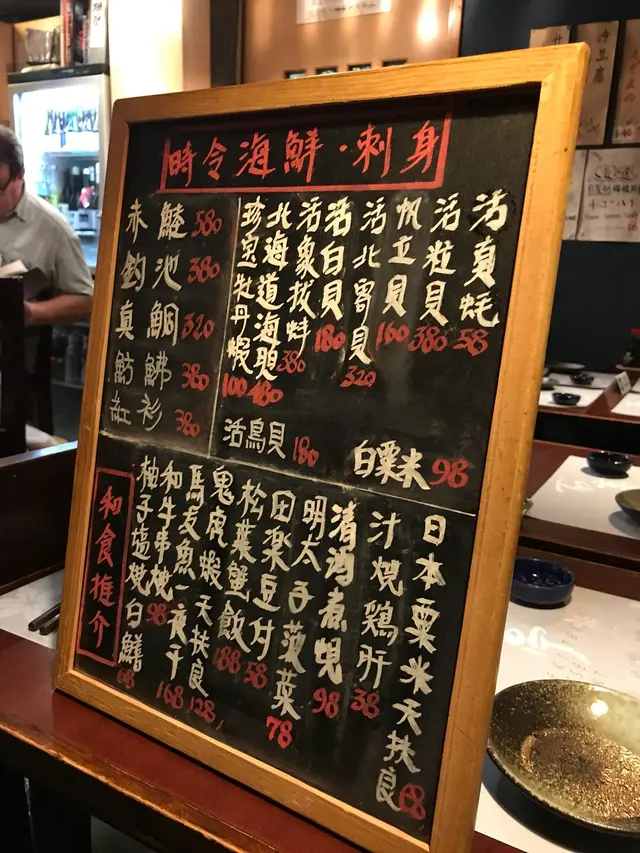 時令海鮮·刺身
活夏蚝 58
活粒貝 380
帆立貝 160
活北寄貝 320
活白貝 180
活象拔蚌 380
北海道海胆 480
珍宝牡丹蝦 100
活鳥貝 180
白粟米 98
赤 380
釣池 380
真鯛 320
魴鮄 380
紅衫 380
和食推介
日本粟米天扶良 68
汁燒鷄肝 38
清酒煮蜆 98
明太子菠菜 78
田楽豆付 58
松葉蟹飯 188
鬼虎蝦天扶良 128
馬友魚一夜干 168
和牛串燒 98
柚子塩燒白鱔 68
冷豆腐